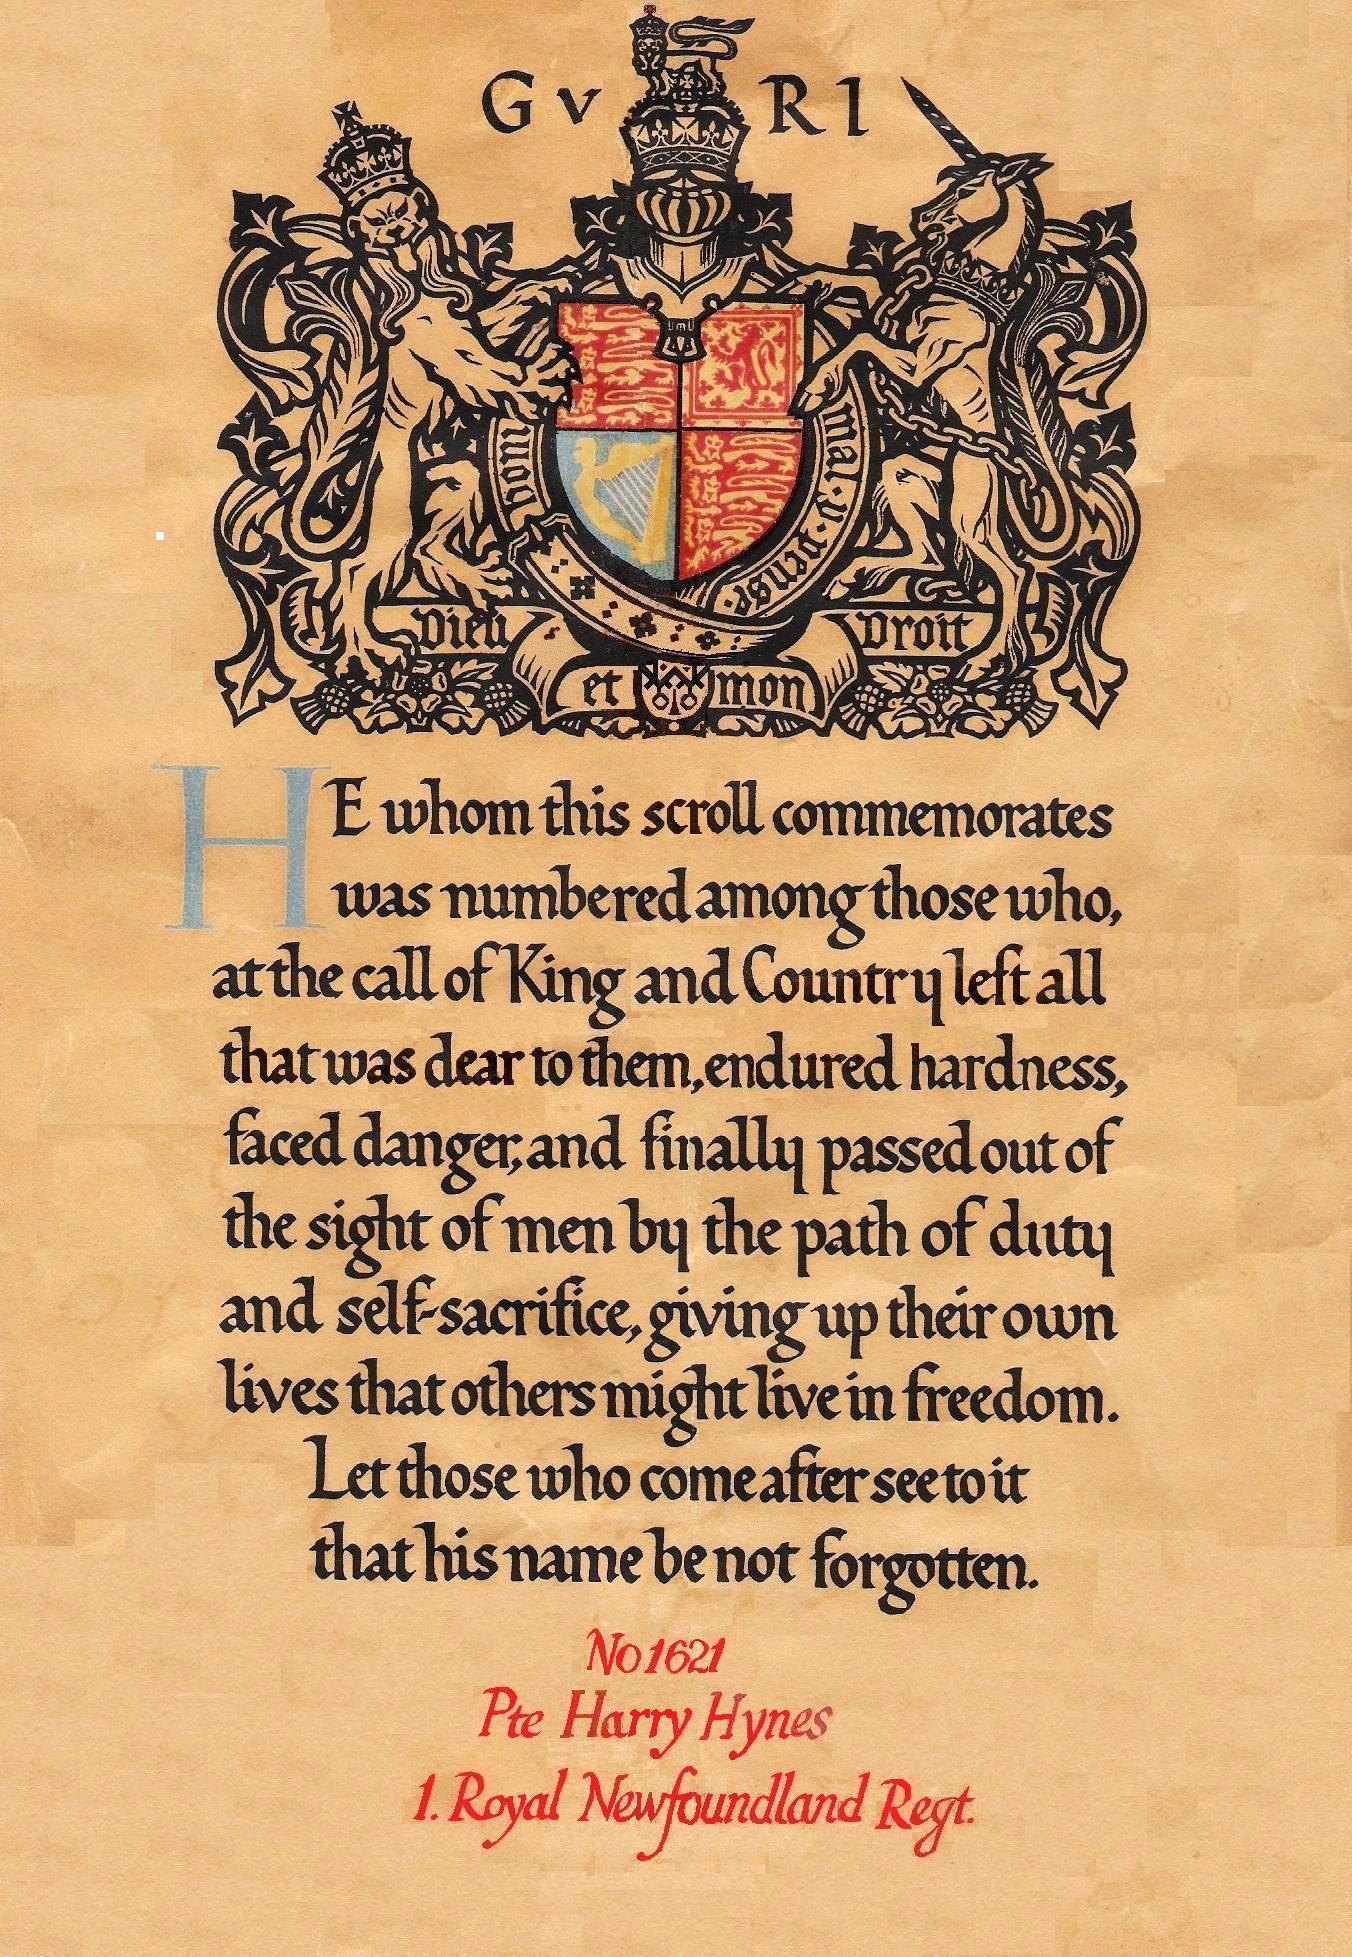 G V R I
hom
mal·y·pense·
Dieu
Droit
et mon
HE whom this scroll commemorates
was numbered among those who,
at the call of King and Country left all
that was dear to them, endured hardness,
faced danger, and finally passed out of
the sight of men by the path of duty
and self-sacrifice, giving up their own
lives that others might live in freedom.
Let those who come after see to it
that his name be not forgotten.
No 1621
Pte Harry Hynes
1. Royal Newfoundland Regt.